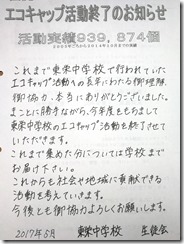 エコキャップ活動終了のお知らせ
活動実績939,874個
2009年ごろから2014年10月までの実績
これまで東栄中学校で行われていた
エコキャップ活動への長年にわたる御理解、
御協力、本当にありがとうございました。
まことに勝手ながら、今年度をもちまして
東栄中学校のエコキャップ活動を終了させて
いただきます。
これまで集めた分については学校まで
お届け下さい。
これからも社会や地域に貢献できる
活動を考えていきます。
今後とも御協力よろしくお願いします。
2017年5月 東栄中学校 生徒会